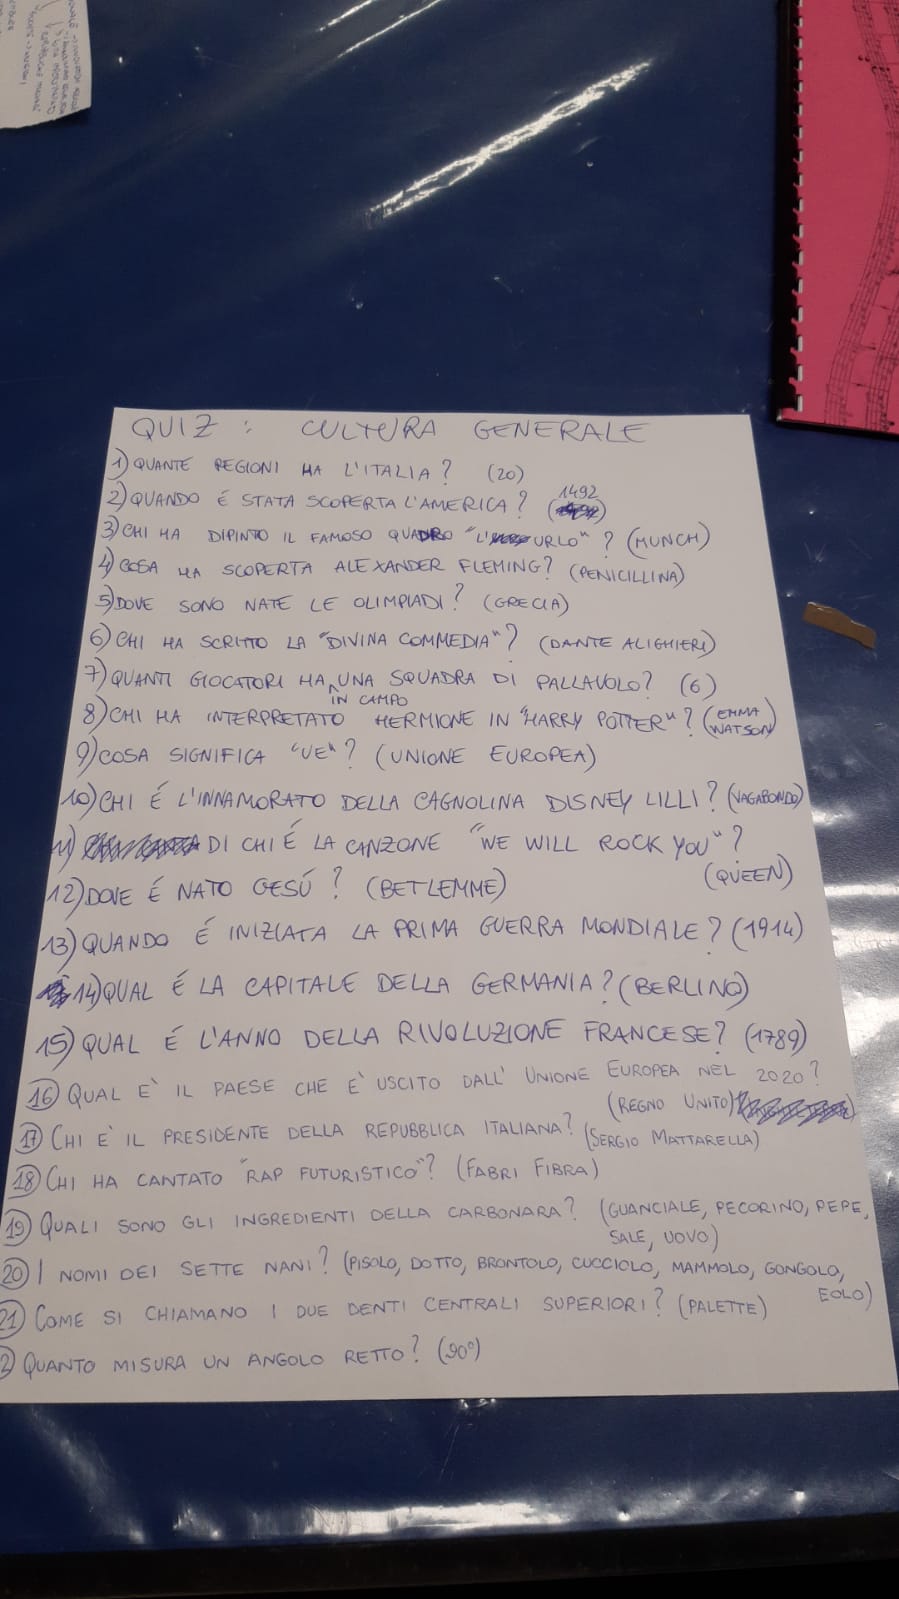 QUIZ : CULTURA GENERALE
1) QUANTE REGIONI HA L'ITALIA? (20)
2) QUANDO É STATA SCOPERTA L'AMERICA? (1492)
3) CHI HA DIPINTO IL FAMOSO QUADRO "L'URLO"? (MUNCH)
4) COSA HA SCOPERTA ALEXANDER FLEMING? (PENICILLINA)
5) DOVE SONO NATE LE OLIMPIADI? (GRECIA)
6) CHI HA SCRITTO LA "DIVINA COMMEDIA"? (DANTE ALIGHIERI)
7) QUANTI GIOCATORI HA IN CAMPO UNA SQUADRA DI PALLAVOLO? (6)
8) CHI HA INTERPRETATO HERMIONE IN "HARRY POTTER"? (EMMA WATSON)
9) COSA SIGNIFICA "UE"? (UNIONE EUROPEA)
10) CHI É L'INNAMORATO DELLA CAGNOLINA DISNEY LILLI? (VAGABONDO)
11) DI CHI É LA CANZONE "WE WILL ROCK YOU"?
(QUEEN)
12) DOVE É NATO GESÚ? (BETLEMME)
13) QUANDO É INIZIATA LA PRIMA GUERRA MONDIALE? (1914)
14) QUAL É LA CAPITALE DELLA GERMANIA? (BERLINO)
15) QUAL É L'ANNO DELLA RIVOLUZIONE FRANCESE? (1789)
16 QUAL E' IL PAESE CHE E' USCITO DALL' UNIONE EUROPEA NEL 2020?
(REGNO UNITO)
17 CHI E' IL PRESIDENTE DELLA REPUBBLICA ITALIANA? (SERGIO MATTARELLA)
18 CHI HA CANTATO "RAP FUTURISTICO"? (FABRI FIBRA)
19 QUALI SONO GLI INGREDIENTI DELLA CARBONARA? (GUANCIALE, PECORINO, PEPE,
SALE, UOVO)
20 I NOMI DEI SETTE NANI? (PISOLO, DOTTO, BRONTOLO, CUCCIOLO, MAMMOLO, GONGOLO,
EOLO)
21 COME SI CHIAMANO I DUE DENTI CENTRALI SUPERIORI? (PALETTE)
2 QUANTO MISURA UN ANGOLO RETTO? (90°)